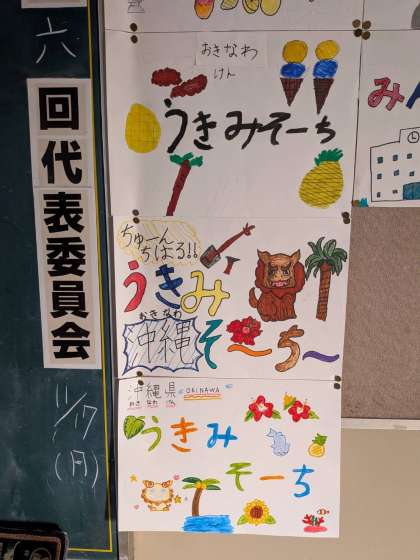 六
回代表委員会
11/17
(月)
おきなわ
けん
うきみそーち
みん
ちゅーん
ちばる!!
うきみ
おきなわ
沖縄
そ〜ち〜
沖縄県
おきなわけん
OKINAWA
うきみ
そーち